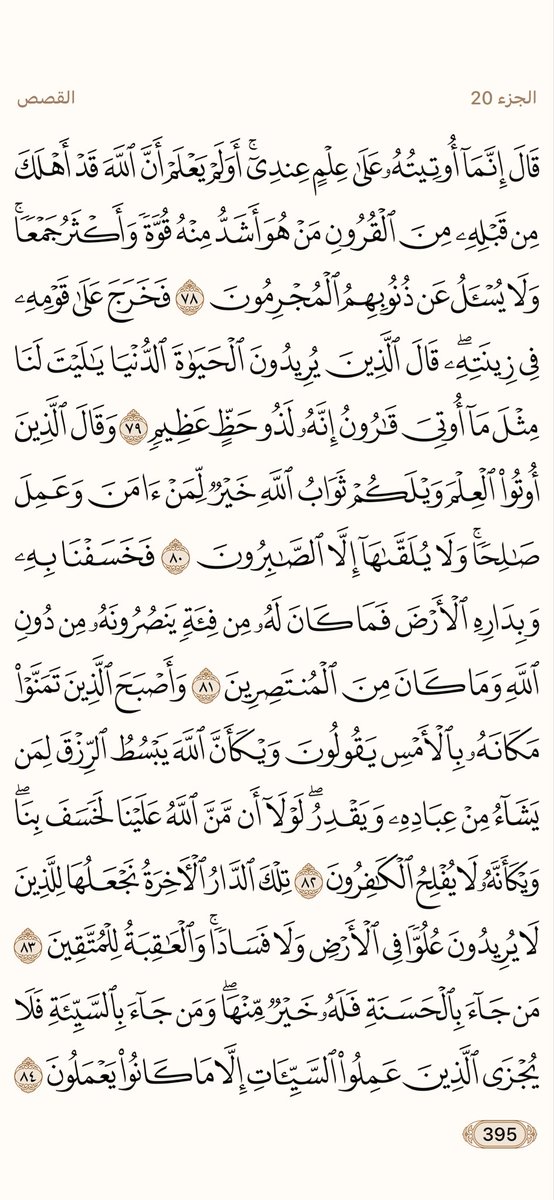 الجزء 20
القصص
قَالَ إِنَّمَآ أُوتِيتُهُۥ عَلَىٰ عِلْمٍ عِندِىٓۚ أَوَلَمْ يَعْلَمْ أَنَّ ٱللَّهَ قَدْ أَهْلَكَ
مِن قَبْلِهِۦ مِنَ ٱلْقُرُونِ مَنْ هُوَ أَشَدُّ مِنْهُ قُوَّةً وَأَكْثَرُ جَمْعًاۚ
وَلَا يُسْـَٔلُ عَن ذُنُوبِهِمُ ٱلْمُجْرِمُونَ ٧٨ فَخَرَجَ عَلَىٰ قَوْمِهِۦ
فِى زِينَتِهِۦۖ قَالَ ٱلَّذِينَ يُرِيدُونَ ٱلْحَيَوٰةَ ٱلدُّنْيَا يَـٰلَيْتَ لَنَا
مِثْلَ مَآ أُوتِىَ قَـٰرُونُ إِنَّهُۥ لَذُو حَظٍّ عَظِيمٍ ٧٩ وَقَالَ ٱلَّذِينَ
أُوتُوا۟ ٱلْعِلْمَ وَيْلَكُمْ ثَوَابُ ٱللَّهِ خَيْرٌ لِّمَنْ ءَامَنَ وَعَمِلَ
صَـٰلِحًاۚ وَلَا يُلَقَّىٰهَآ إِلَّا ٱلصَّـٰبِرُونَ ٨٠ فَخَسَفْنَا بِهِۦ
وَبِدَارِهِ ٱلْأَرْضَ فَمَا كَانَ لَهُۥ مِن فِئَةٍ يَنصُرُونَهُۥ مِن دُونِ
ٱللَّهِ وَمَا كَانَ مِنَ ٱلْمُنتَصِرِينَ ٨١ وَأَصْبَحَ ٱلَّذِينَ تَمَنَّوْا۟
مَكَانَهُۥ بِٱلْأَمْسِ يَقُولُونَ وَيْكَأَنَّ ٱللَّهَ يَبْسُطُ ٱلرِّزْقَ لِمَن
يَشَآءُ مِنْ عِبَادِهِۦ وَيَقْدِرُۖ لَوْلَآ أَن مَّنَّ ٱللَّهُ عَلَيْنَا لَخَسَفَ بِنَاۖ
وَيْكَأَنَّهُۥ لَا يُفْلِحُ ٱلْكَـٰفِرُونَ ٨٢ تِلْكَ ٱلدَّارُ ٱلْـَٔاخِرَةُ نَجْعَلُهَا لِلَّذِينَ
لَا يُرِيدُونَ عُلُوًّا فِى ٱلْأَرْضِ وَلَا فَسَادًاۚ وَٱلْعَـٰقِبَةُ لِلْمُتَّقِينَ ٨٣
مَن جَآءَ بِٱلْحَسَنَةِ فَلَهُۥ خَيْرٌ مِّنْهَاۖ وَمَن جَآءَ بِٱلسَّيِّئَةِ فَلَا
يُجْزَى ٱلَّذِينَ عَمِلُوا۟ ٱلسَّيِّـَٔاتِ إِلَّا مَا كَانُوا۟ يَعْمَلُونَ ٨٤
395